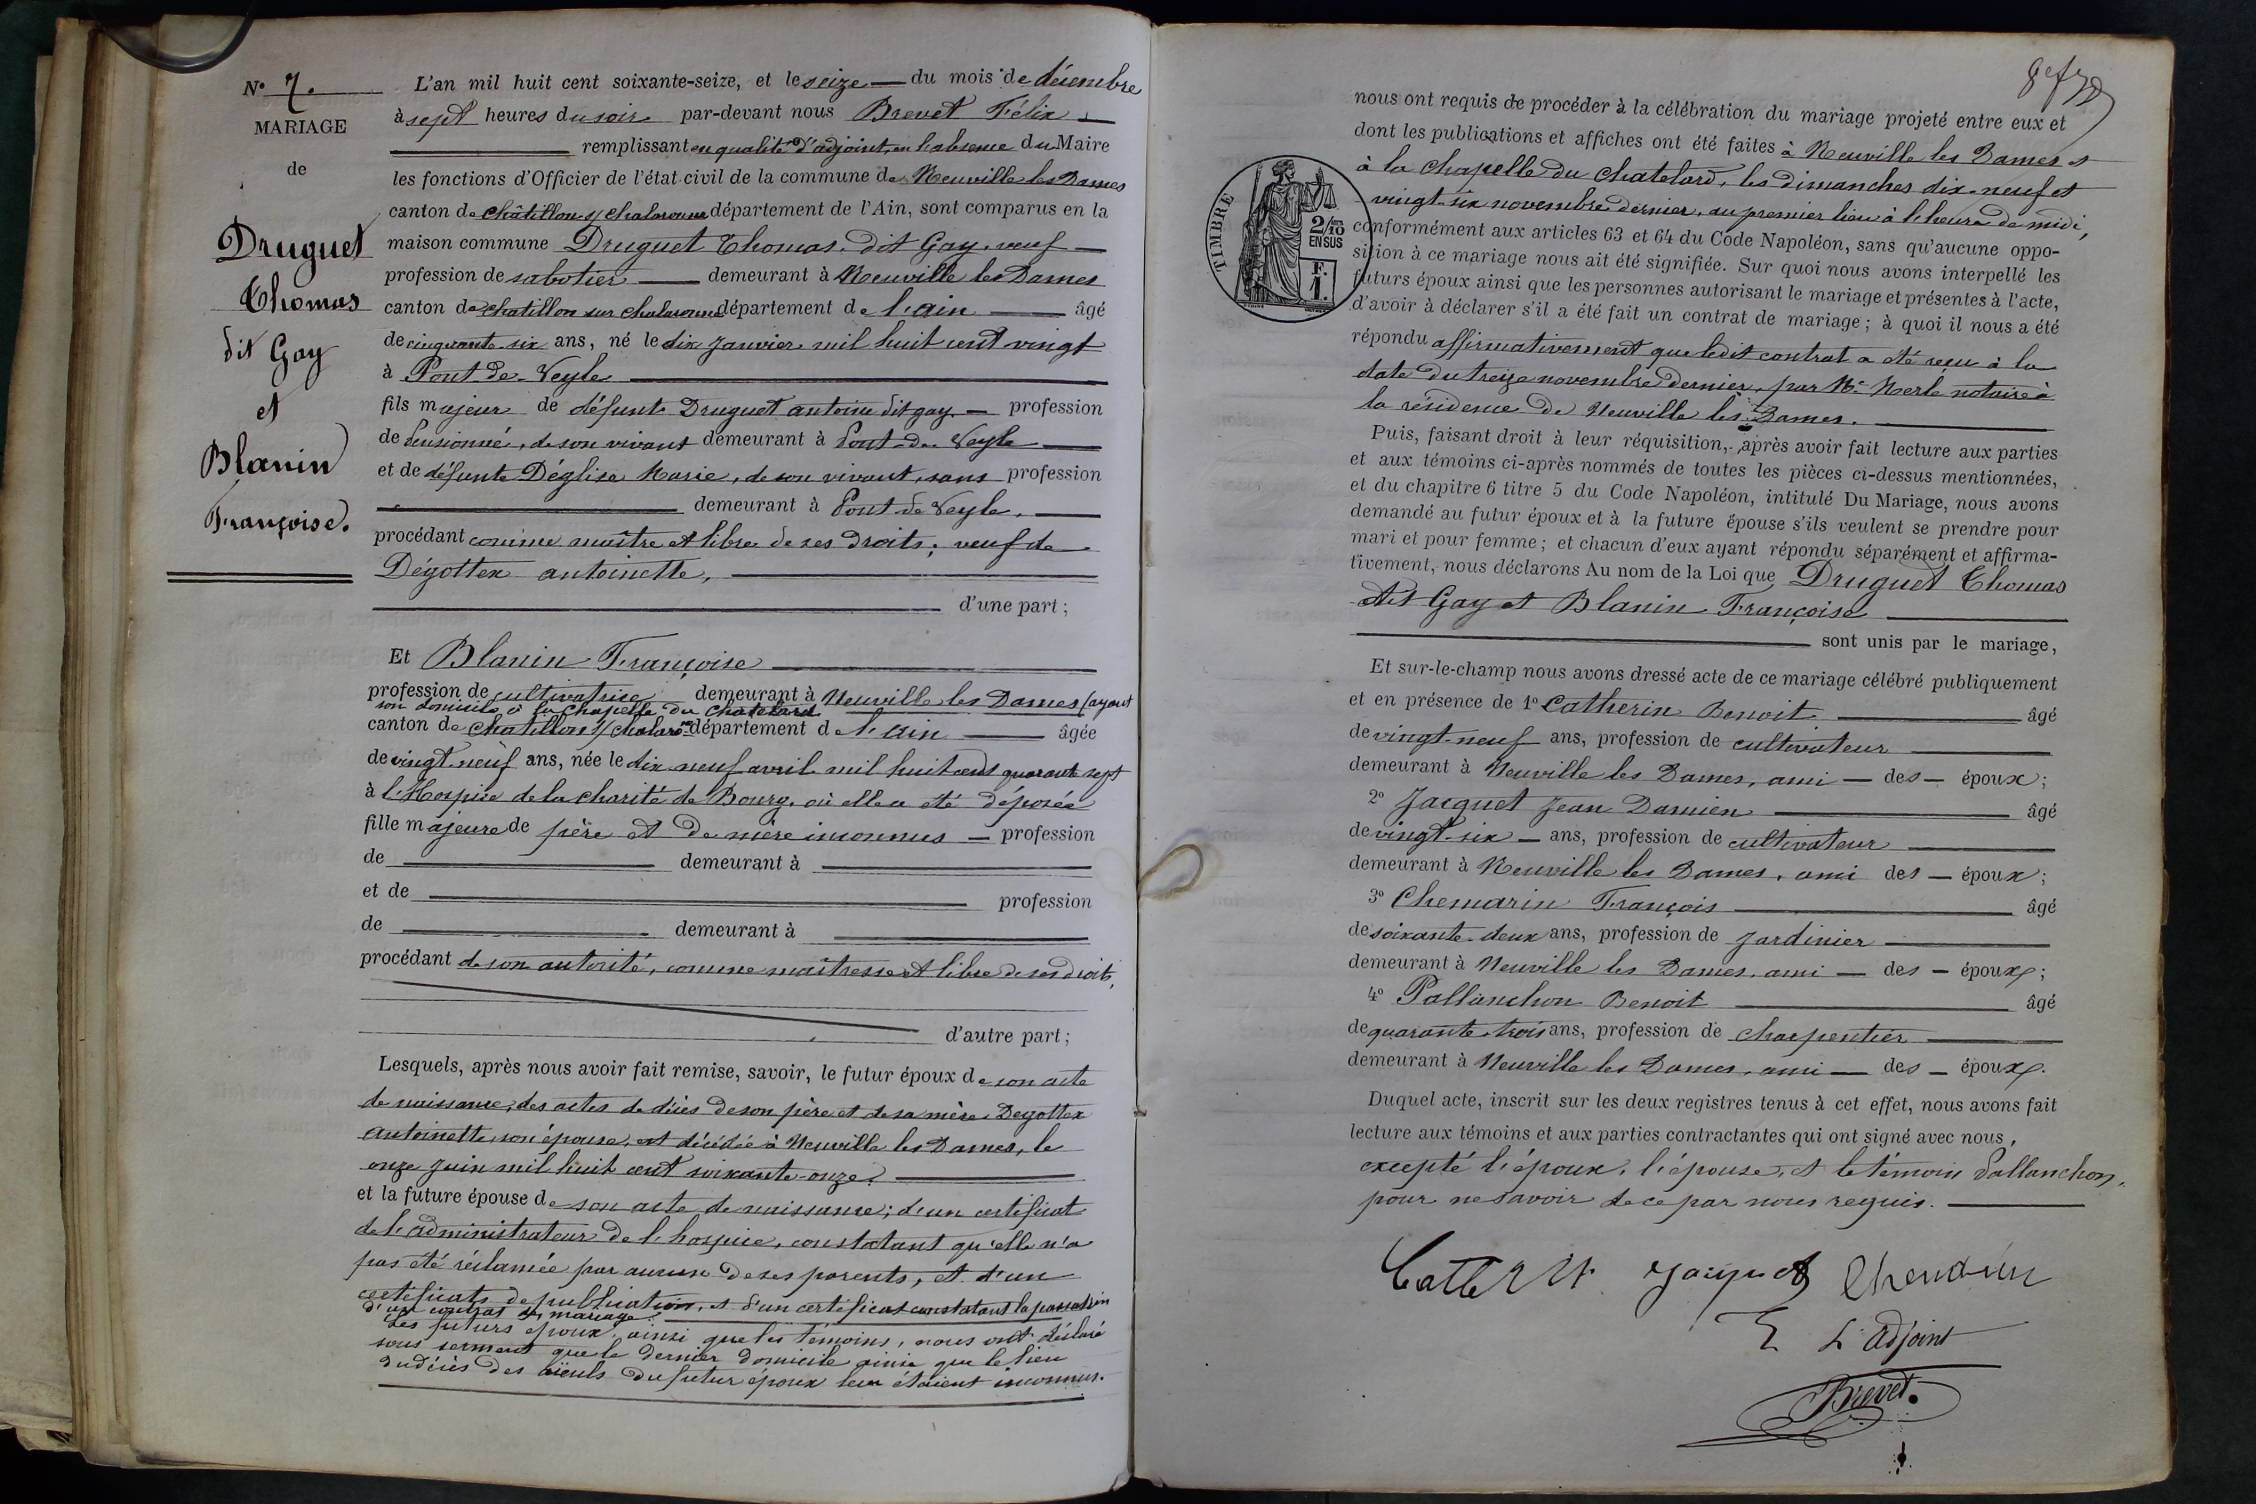 N° 7.
MARIAGE
de
Druguet
Thomas
dit Gay
et
Blanin
Françoise.
L'an mil huit cent soixante-seize, et le seize du mois de décembre
à sept heures du soir par-devant nous Brevet Félix
remplissant en qualité d'adjoint, en l'absence du Maire
les fonctions d'Officier de l'état civil de la commune de Neuville les Dames
canton de châtillon s/ chalaronne département de l'Ain, sont comparus en la
maison commune Druguet Thomas dit Gay, veuf
profession de sabotier demeurant à Neuville les Dames
canton de chatillon sur chalaronne département de l'ain âgé
de cinquante six ans, né le dix Janvier mil huit cent vingt
à Pont-de-Veyle
fils majeur de défunt Druguet antoine dit gay profession
de Pensionné, de son vivant demeurant à Pont-de-Veyle
et de défunte Déglise Marie, de son vivant, sans profession
demeurant à Pont-de-Veyle,
procédant comme maître et libre de ses droits; veuf de
Dégottex antoinette,
d'une part;
Et Blanin Françoise
profession de cultivatrice demeurant à Neuville les Dames (ayant
son domicile à la Chapelle du Chatelard
canton de chatillon s/ chalaronne département de l'ain âgée
de vingt-neuf ans, née le dix-neuf avril mil huit cent quarante sept
à l'Hospice de la charité de Bourg, où elle a été déposée
fille majeure de père et de mère inconnus profession
de demeurant à
et de profession
de demeurant à
procédant de son autorité, comme maîtresse et libre de ses droits,
d'autre part;
Lesquels, après nous avoir fait remise, savoir, le futur époux de son acte
de naissance, des actes de décès de son père et de sa mère. Degottex
antoinette, son épouse, est décédée à Neuville les Dames, le
onze Juin mil huit cent soixante-onze.
et la future épouse de son acte de naissance; d'un certificat
de l'administrateur de l'hospice, constatant qu'elle n'a
pas été réclamée par aucun de ses parents, et d'un
certificats de publication, et d'un certificat constatant la passation
d'un contrat de mariage.
Les futurs époux, ainsi que les témoins, nous ont déclaré
sous serment que le dernier domicile ainsi que le lieu
du décès des aïeuls du futur époux leur étaient inconnus.
nous ont requis de procéder à la célébration du mariage projeté entre eux et
dont les publications et affiches ont été faites à Neuville les Dames et
à la chapelle du chatelard, les dimanches dix-neuf et
vingt-six novembre dernier, au premier lieu à l'heure de midi,
conformément aux articles 63 et 64 du Code Napoléon, sans qu'aucune oppo-
sition à ce mariage nous ait été signifiée. Sur quoi nous avons interpellé les
futurs époux ainsi que les personnes autorisant le mariage et présentes à l'acte,
d'avoir à déclarer s'il a été fait un contrat de mariage; à quoi il nous a été
répondu affirmativement que ledit contrat a été reçu à la
date du treize novembre dernier, par Me Merle notaire à
la résidence de Neuville les Dames.
TIMBRE
2/10 EN SUS
F. 1.
Puis, faisant droit à leur réquisition, après avoir fait lecture aux parties
et aux témoins ci-après nommés de toutes les pièces ci-dessus mentionnées,
et du chapitre 6 titre 5 du Code Napoléon, intitulé Du Mariage, nous avons
demandé au futur époux et à la future épouse s'ils veulent se prendre pour
mari et pour femme; et chacun d'eux ayant répondu séparément et affirma-
tivement, nous déclarons Au nom de la Loi que Druguet Thomas
dit Gay et Blanin Françoise
sont unis par le mariage,
Et sur-le-champ nous avons dressé acte de ce mariage célébré publiquement
et en présence de 1° Catherin Benoit âgé
de vingt-neuf ans, profession de cultivateur
demeurant à Neuville les Dames, ami des époux;
2° Jacquet Jean Damien âgé
de vingt-six ans, profession de cultivateur
demeurant à Neuville les Dames, ami des époux;
3° Chemarin François âgé
de soixante-deux ans, profession de Jardinier
demeurant à Neuville les Dames, ami des époux;
4° Pallanchon Benoit âgé
de quarante-trois ans, profession de charpentier
demeurant à Neuville les Dames, ami des époux.
Duquel acte, inscrit sur les deux registres tenus à cet effet, nous avons fait
lecture aux témoins et aux parties contractantes qui ont signé avec nous,
excepté l'époux, l'épouse, et le témoin Pallanchon,
pour ne savoir de ce par nous requis.
Jacquet
L'adjoint
Brevet.